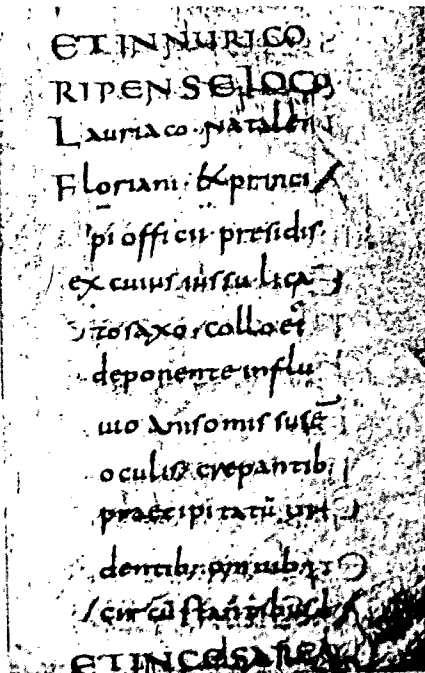 ET IN NURICO
RIPENSE LOCO
Lauriaco. natale
Floriani. Ex princi
pi officii presidis.
ex cuius iussu liga
to saxo. collo ei
deponente in flu
uio Aniso missus ē
oculis crepantib;
praecipitatū
dentib; omnib;
circū stantibus
ET IN CESAREA